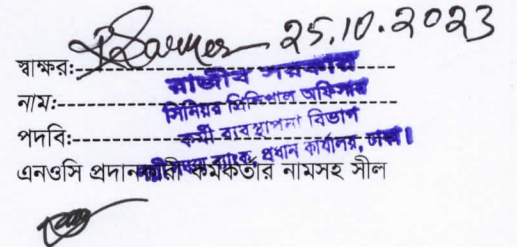 25.10.2023
স্বাক্ষর:
রাজীব সরকার
নাম:
সিনিয়র প্রিন্সিপাল অফিসার
পদবি:
কর্মী ব্যবস্থাপনা বিভাগ
ব্যাংক, প্রধান কার্যালয়, ঢাকা।
এনওসি প্রদানকারী কর্মকর্তার নামসহ সীল